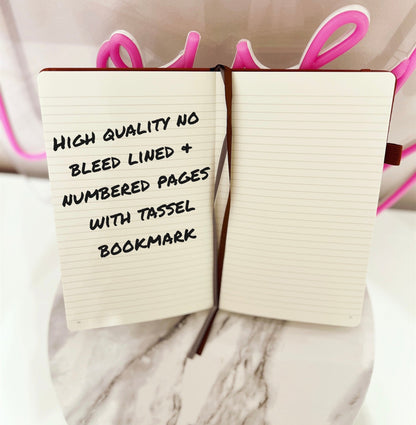 HIGH QUALITY NO
BLEED LINED &
NUMBERED PAGES
WITH TASSEL
BOOKMARK